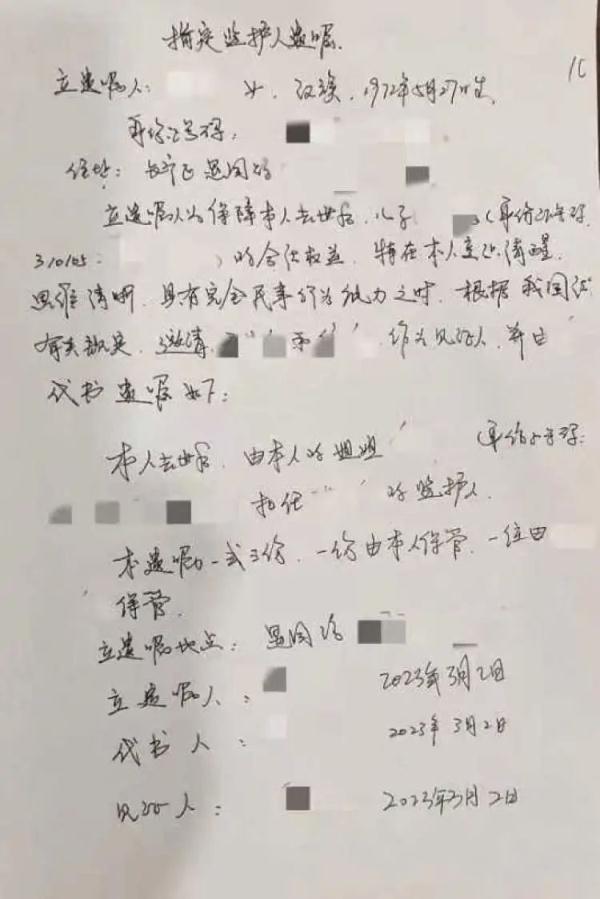 指定监护人遗嘱
1C
立遗嘱人: 女、汉族、1972年5月27日生
身份证号码:
住址: 长宁区 思国路
立遗嘱人为保障本人去世后,儿子 (身份证号码
310105 )的合法权益,特在本人意识清醒、
思维清晰、具有完全民事行为能力之时,根据我国法
有关规定,邀请 和 作为见证人,并由
代书遗嘱如下:
本人去世后,由本人的姐姐 (身份证号码:
担任 的监护人。
本遗嘱一式三份,一份由本人保管,一位由
保管。
立遗嘱地点:
立遗嘱人: 2023年3月2日
代书人: 2023年3月2日
见证人: 2023年3月2日